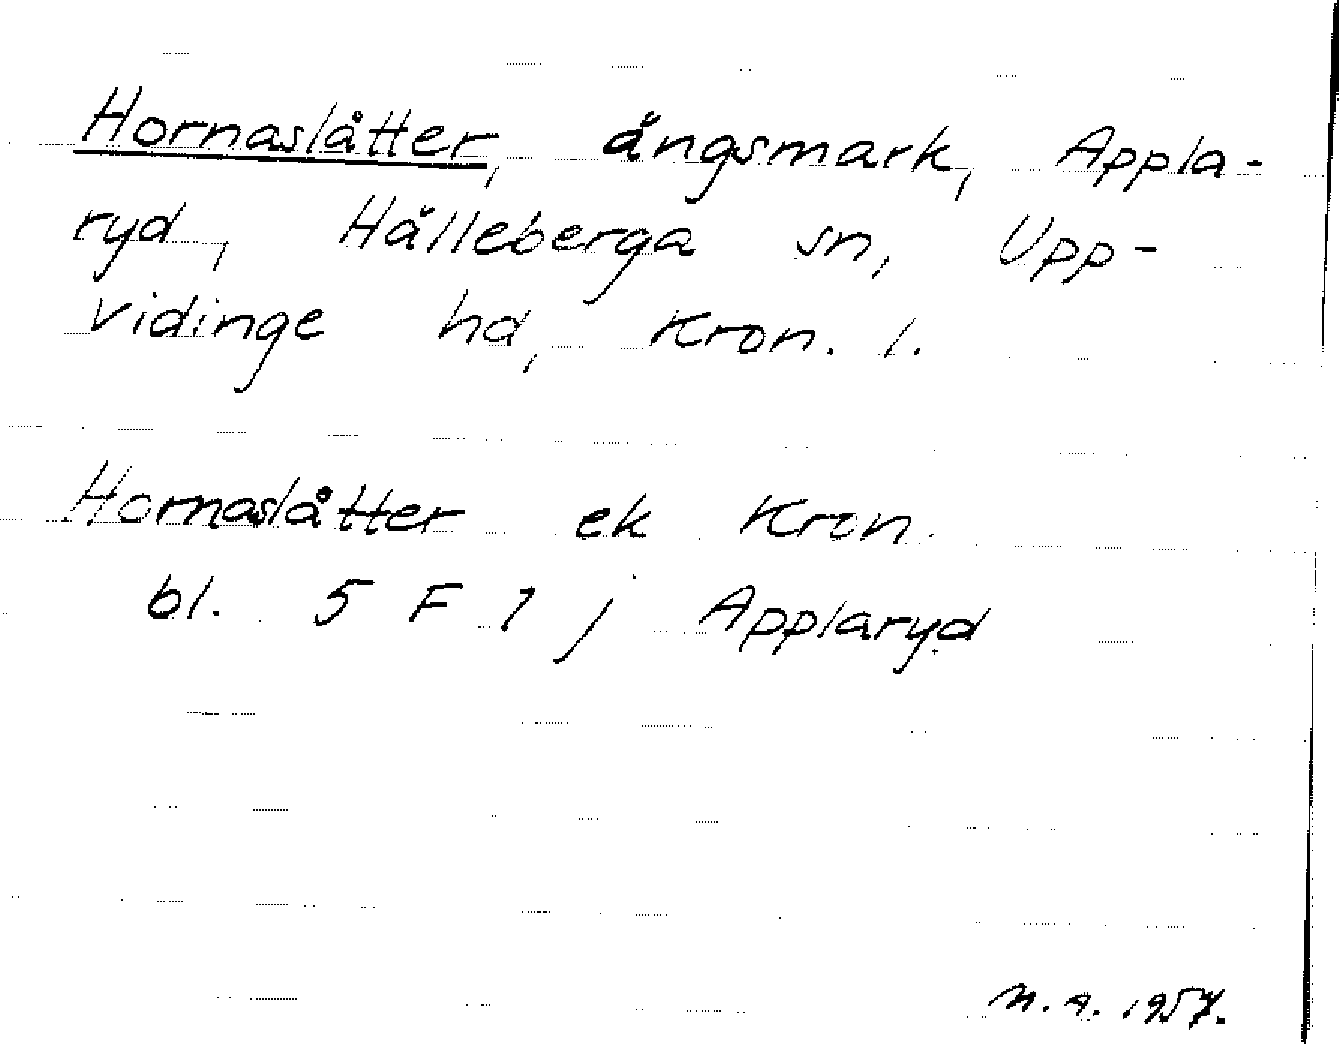 Hornaslåtter, ängsmark, Appla-
ryd, Hälleberga sn, Upp-
vidinge hd, Kron. l.
Hornaslåtter ek Kron.
bl. 5 F 7 j Applaryd
M. A. 1957.